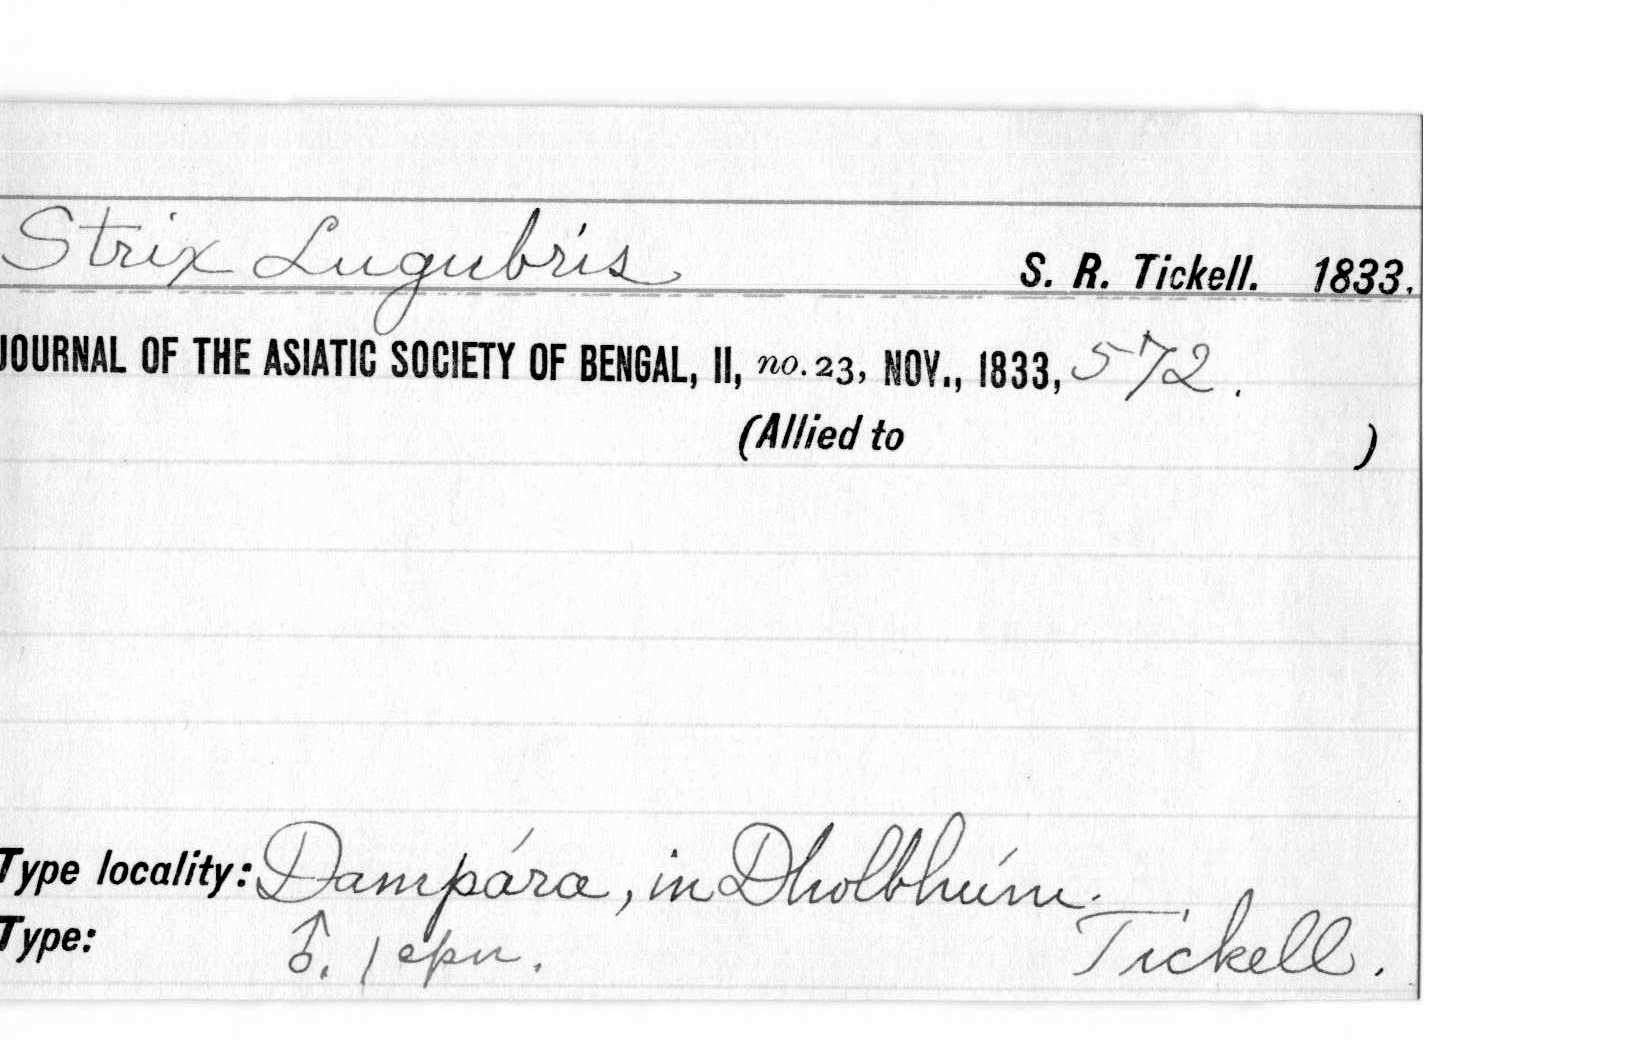 Strix Lugubris S. R. Tickell. 1833.
JOURNAL OF THE ASIATIC SOCIETY OF BENGAL, II, no. 23, NOV., 1833, 572.
(Allied to )
Type locality: Dampára, in Dholbhúm.
Type: ♂. 1 epn. Tickell.